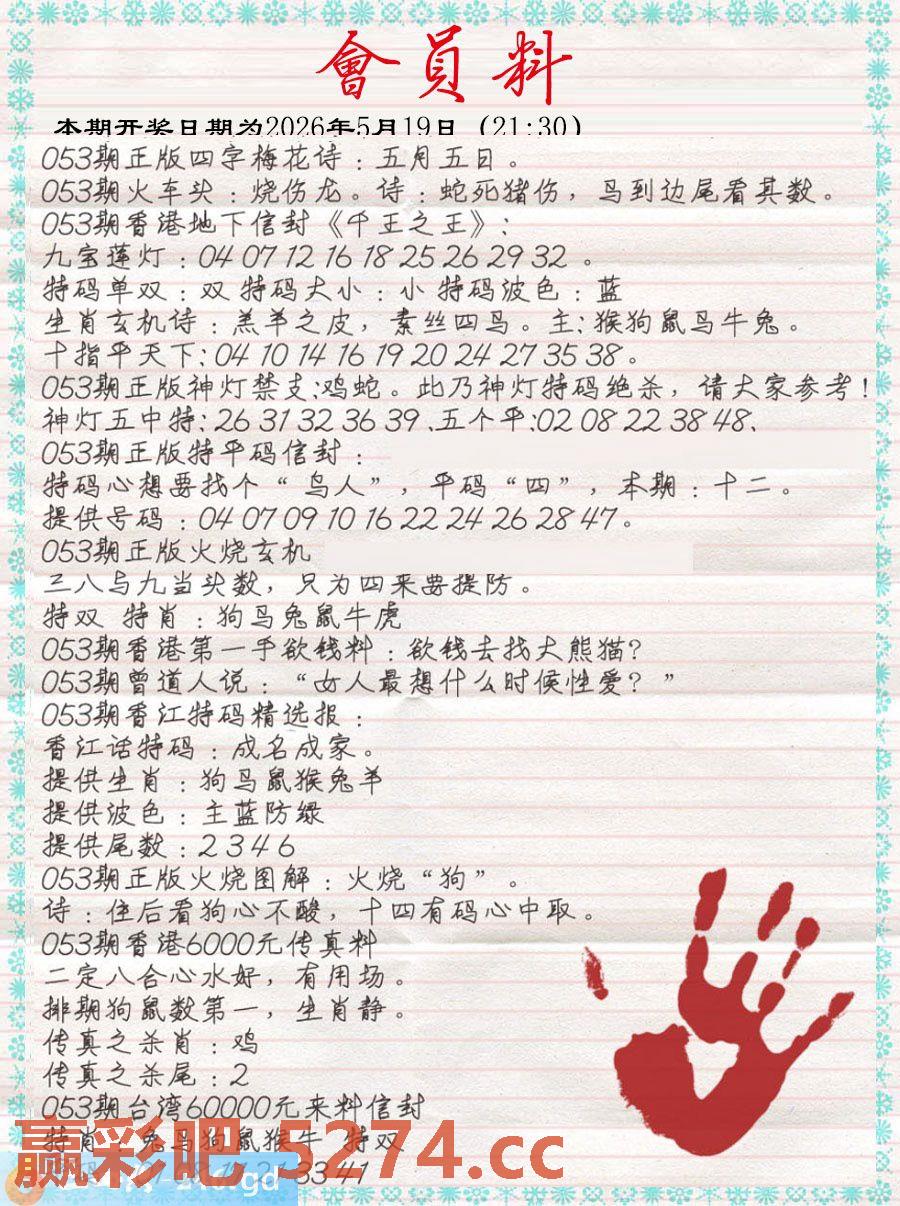 會員料
本期开奖日期为2026年5月19日（21:30）
053期正版四字梅花诗：五月五日。
053期火车头：烧伤龙。诗：蛇死猪伤，鸟到边尾看其数。
053期香港地下信封《千王之王》：
九宝莲灯：04 07 12 16 18 25 26 29 32 。
特码单双：双 特码大小：小 特码波色：蓝
生肖玄机诗：羔羊之皮，素丝四鸟。主：猴狗鼠鸟牛兔。
十指平天下：04 10 14 16 19 20 24 27 35 38。
053期正版神灯禁支：鸡蛇。此乃神灯特码绝杀，请大家参考！
神灯五中特：26 31 32 36 39 、五个平：02 08 22 38 48、
053期正版特平码信封：
特码心想要找个“鸟人”，平码“四”，本期：十二。
提供号码：04 07 09 10 16 22 24 26 28 47。
053期正版火烧玄机
三八与九当头数，只为四来要提防。
特双 特肖：狗鸟兔鼠牛虎
053期香港第一手欲钱料：欲钱去找大熊猫？
053期曾道人说：“女人最想什么时候性爱？”
053期香江特码精选报：
香江话特码：成名成家。
提供生肖：狗鸟鼠猴兔羊
提供波色：主蓝防绿
提供尾数：2 3 4 6
053期正版火烧图解：火烧“狗”。
诗：住后看狗心不酸，十四有码心中取。
053期香港6000元传真料
二定八合心水好，有用场。
排期狗鼠数第一，生肖静。
传真之杀肖：鸡
传真之杀尾：2
053期台湾60000元来料信封
特肖：兔鸟狗鼠猴牛 特双
赢彩吧.5274.cc
33 41